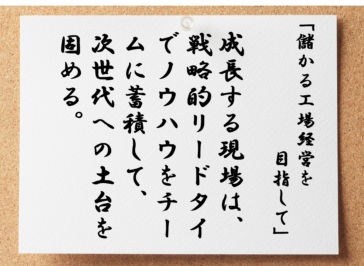 「儲かる工場経営を
目指して」
成長する現場は、
戦略的リードタイ
でノウハウをチー
ムに蓄積して、
次世代への土台を
固める。